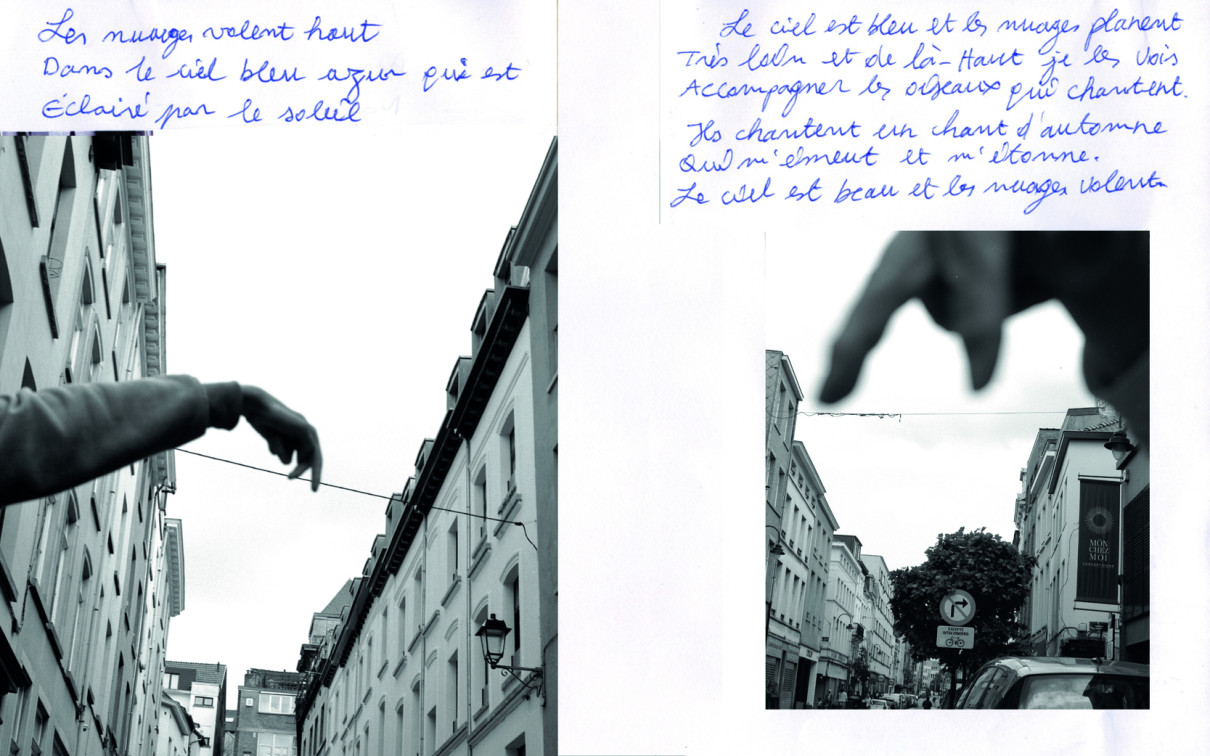 Les nuages volent haut
Dans le ciel bleu azur qui est
Éclairé par le soleil
Le ciel est bleu et les nuages planent
Très loin et de là-Haut je les vois
Accompagner les oiseaux qui chantent.
Ils chantent un chant d'automne
Qui m'émeut et m'étonne.
Le ciel est beau et les nuages volent.
MON
CHEZ
MOI
EXCEPTÉ